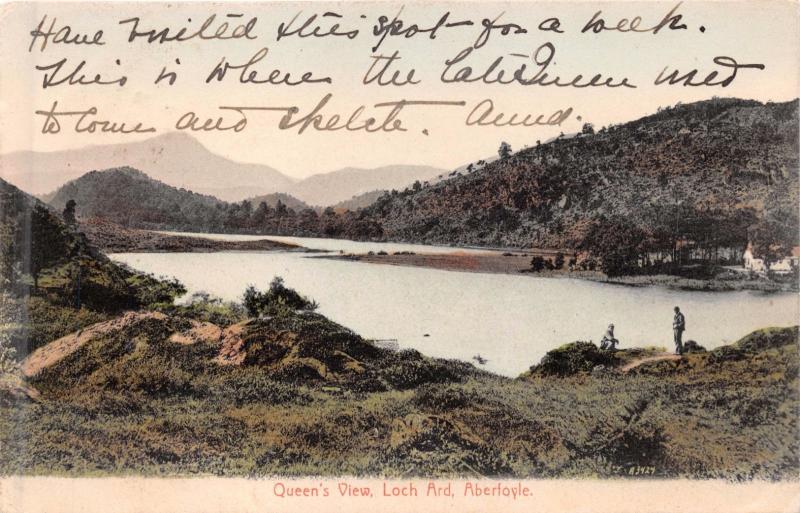 Have visited this spot for a week.
This is where the late Queen used
to come and sketch. Annd.
Queen's View, Loch Ard, Aberfoyle.
A3424